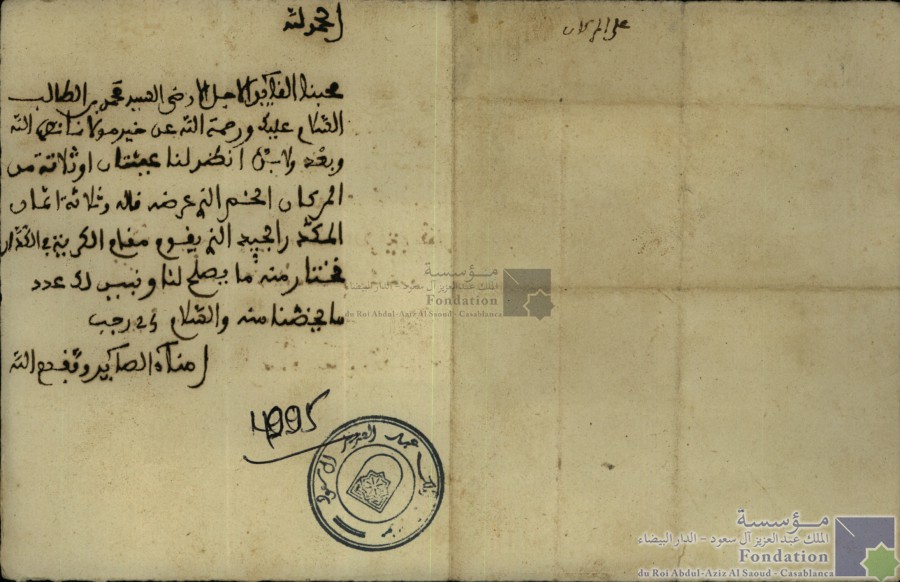 الحمد لله
على المركان
محبنا الفايد الاجل الارضى السيد محمد بن الطالب
السلام عليك ورحمة الله عن خير مولانا نصره الله
وبعد ولابد انظر لنا عينتان او ثلاثة من
المركان الخشم الذي عرضه فاله وثلاثة اثمان
الجيد الذي يفوم مفام الكرينة في
فختار منه ما يصلح لنا ونبين لك عدد
ما يخصنا منه والسلام في رجب
امناء الصاير وفبهم الله
4995
مؤسسة
الملك عبد العزيز آل سعود - الدار البيضاء
Fondation
du Roi Abdul-Aziz Al Saoud - Casablanca
عبد العزيز آل سعود
مؤسسة
الملك عبد العزيز آل سعود - الدار البيضاء
Fondation
du Roi Abdul-Aziz Al Saoud - Casablanca